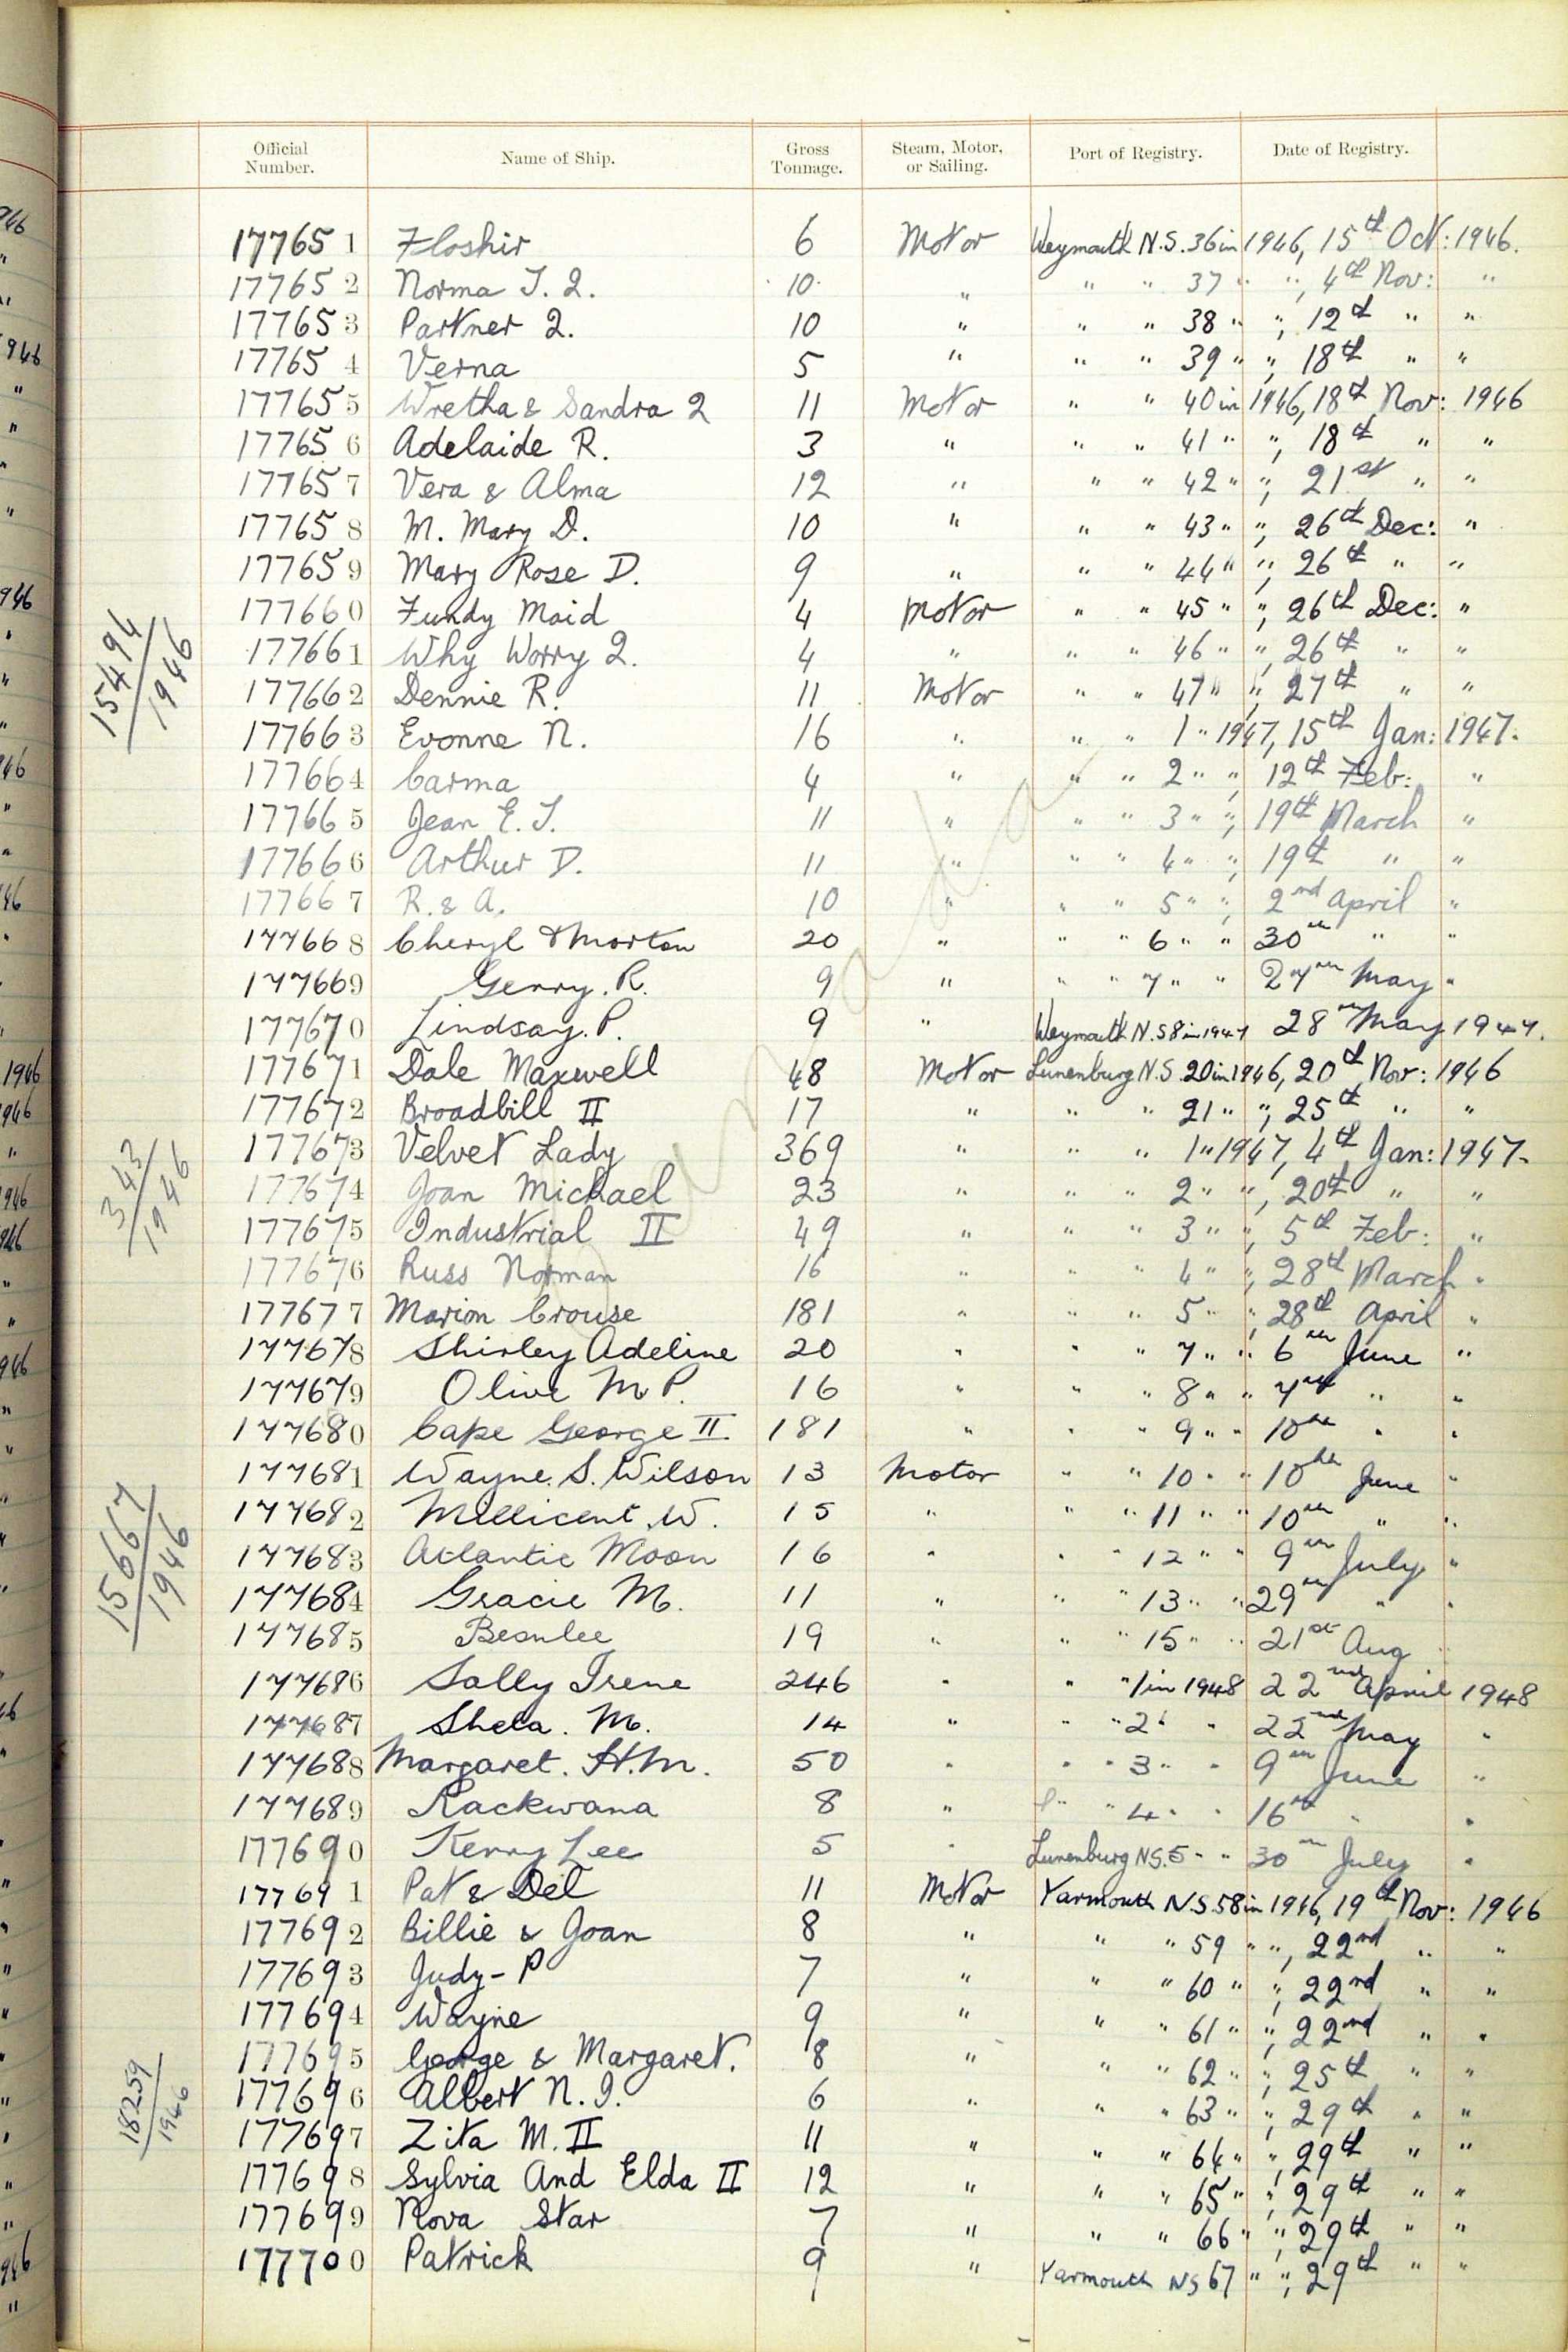 Official Number. Name of Ship. Gross Tonnage. Steam, Motor, or Sailing. Port of Registry. Date of Registry.
177651 Floshir 6 Motor Weymouth N.S. 36 in 1946, 15th Oct: 1946.
177652 Norma J. 2. 10 " " " 37 " ", 4th Nov: "
177653 Partner 2. 10 " " " 38 " ", 12th " "
177654 Verna 5 " " " 39 " ", 18th " "
177655 Wretha & Sandra 2 11 Motor " " 40 in 1946, 18th Nov: 1946
177656 Adelaide R. 3 " " " 41 " ", 18th " "
177657 Vera & Alma 12 " " " 42 " ", 21st " "
177658 M. Mary D. 10 " " " 43 " ", 26th Dec: "
177659 Mary Rose D. 9 " " " 44 " ", 26th " "
177660 Fundy Maid 4 Motor " " 45 " ", 26th Dec: "
177661 Why Worry 2. 4 " " " 46 " ", 26th " "
177662 Dennie R. 11 Motor " " 47 " ", 27th " "
15494/1946
177663 Evonne N. 16 " " " 1 " 1947, 15th Jan: 1947.
177664 Carma 4 " " " 2 " ", 12th Feb: "
177665 Jean E. J. 11 " " " 3 " ", 19th March "
177666 Arthur D. 11 " " " 4 " ", 19th " "
177667 R. & A. 10 " " " 5 " ", 2nd April "
177668 Cheryl & Morton 20 " " " 6 " " 30th " "
177669 Gerry. R. 9 " " " 7 " " 27th May "
177670 Lindsay. P. 9 " Weymouth N.S 8 in 1947 28th May 1947.
177671 Dale Maxwell 48 Motor Lunenburg N.S. 20 in 1946, 20th Nov: 1946
177672 Broadbill II 17 " " " 21 " ", 25th " "
177673 Velvet Lady 369 " " " 1 " 1947, 4th Jan: 1947.
177674 Joan Michael 23 " " " 2 " ", 20th " "
343/1946
177675 Industrial II 49 " " " 3 " ", 5th Feb: "
177676 Russ Norman 16 " " " 4 " ", 28th March "
177677 Marion Crouse 181 " " " 5 " ", 28th April "
177678 Shirley Adeline 20 " " " 7 " " 6th June "
177679 Olive M P. 16 " " " 8 " " 7th " "
177680 Cape George II. 181 " " " 9 " " 10th " "
177681 Wayne. S. Wilson 13 Motor " " 10 " " 10th June "
177682 Millicent. W. 15 " " " 11 " " 10th " "
177683 Atlantic Moon 16 " " " 12 " " 9th July "
15667/1946
177684 Gracie M. 11 " " " 13 " " 29th " "
177685 Besnlee 19 " " " 15 " " 21st Aug "
177686 Sally Irene 246 " " " 1 in 1948 22nd April 1948
177687 Shela. M. 14 " " " 2 " " 22nd May "
177688 Margaret. H.M. 50 " " " 3 " " 9th June "
177689 Rackwana 8 " " " 4 " " 16th " "
177690 Kerry Lee 5 " Lunenburg NS. 5 " " 30th July "
177691 Pat & Del 11 Motor Yarmouth N.S. 58 in 1946, 19th Nov: 1946
177692 Billie & Joan 8 " " " 59 " ", 22nd " "
177693 Judy - P 7 " " " 60 " ", 22nd " "
177694 Wayne 9 " " " 61 " ", 22nd " "
177695 George & Margaret. 8 " " " 62 " ", 25th " "
18259/1946
177696 Albert N. J. 6 " " " 63 " ", 29th " "
177697 Zita M. II 11 " " " 64 " ", 29th " "
177698 Sylvia And Elda II 12 " " " 65 " ", 29th " "
177699 Nova Star 7 " " " 66 " ", 29th " "
177700 Patrick 9 " Yarmouth NS 67 " ", 29th " "
Canada